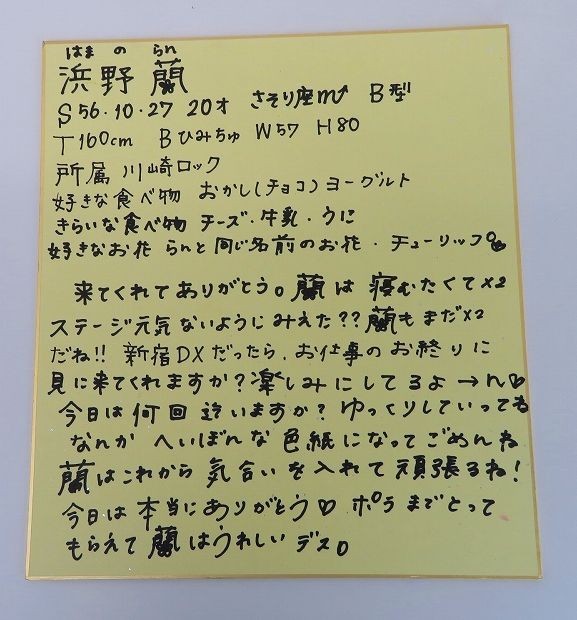 はま の らん
浜野 蘭
S56.10.27 20才 さそり座♏ B型
T160cm Bひみちゅ W57 H80
所属 川崎ロック
好きな食べ物 おかし(チョコ)ヨーグルト
きらいな食べ物 チーズ・牛乳・うに
好きなお花 らんと同じ名前のお花・チューリップ
来てくれてありがとう。蘭は 寝むたくて×2
ステージ元気ないようにみえた??蘭もまだ×2
だね!! 新宿DXだったら、お仕事のお終りに
見に来てくれますか?楽しみにしてるよ→ん♡
今日は何回 迄いますか? ゆっくりしていってね
なんか へいぼんな 色紙になって ごめんね
蘭はこれから 気合いを入れて 頑張るね!
今日は 本当にありがとう♡ ポラまでとって
もらえて 蘭はうれしい デス。